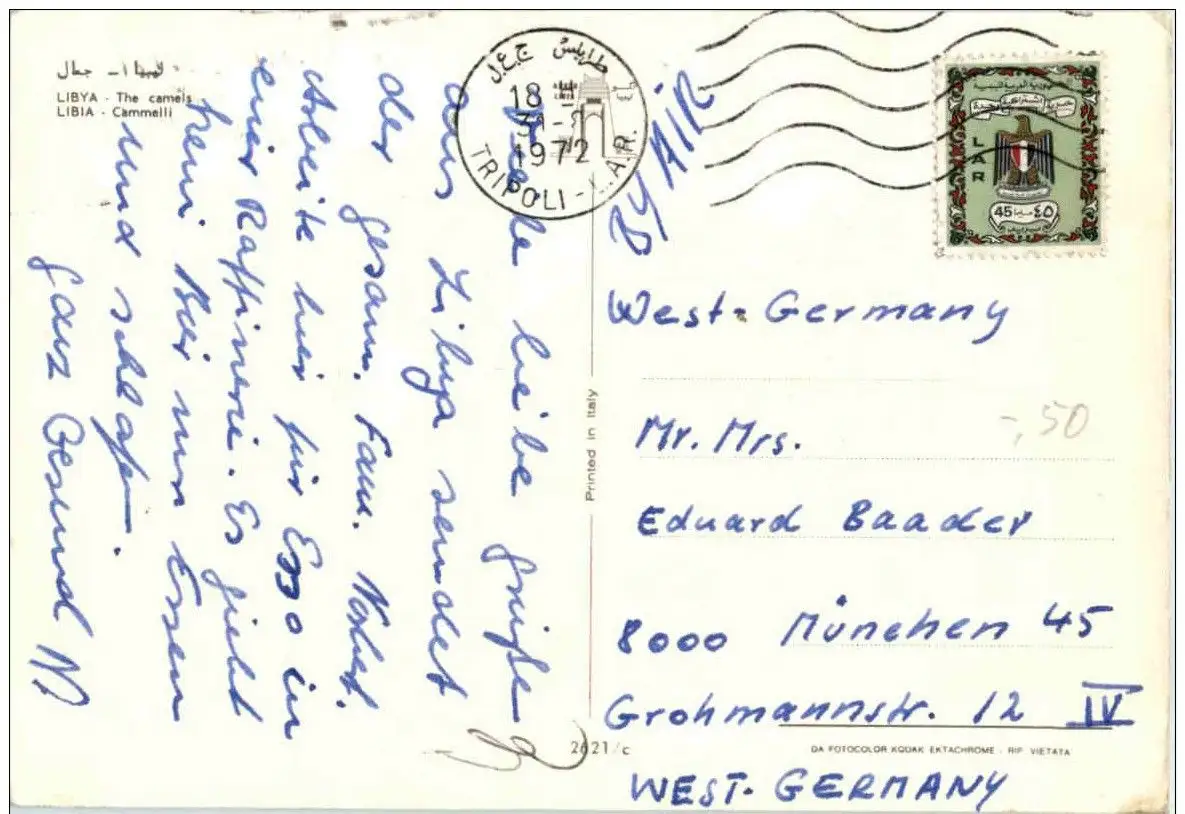 ليبيا - جمال
LIBYA - The camels
LIBIA - Cammelli
liebe Grüße
aus Libya sendet
der gesam. Fam.
Arbeite hier für Esso in
einer Raffinerie. Es giebt
kein Bier nur Essen
und schlafen.
Ganz Gesund
طرابلس ج.ع.ل
18
1972
TRIPOLI - L.A.R.
BY AIR
LAR
45 ٤٥
West-Germany
Mr. Mrs.
-,50
Eduard Baader
8000 München 45
Grohmannstr. 12 IV
WEST-GERMANY
Printed in Italy
2621/c
DA FOTOCOLOR KODAK EKTACHROME - RIP. VIETATA